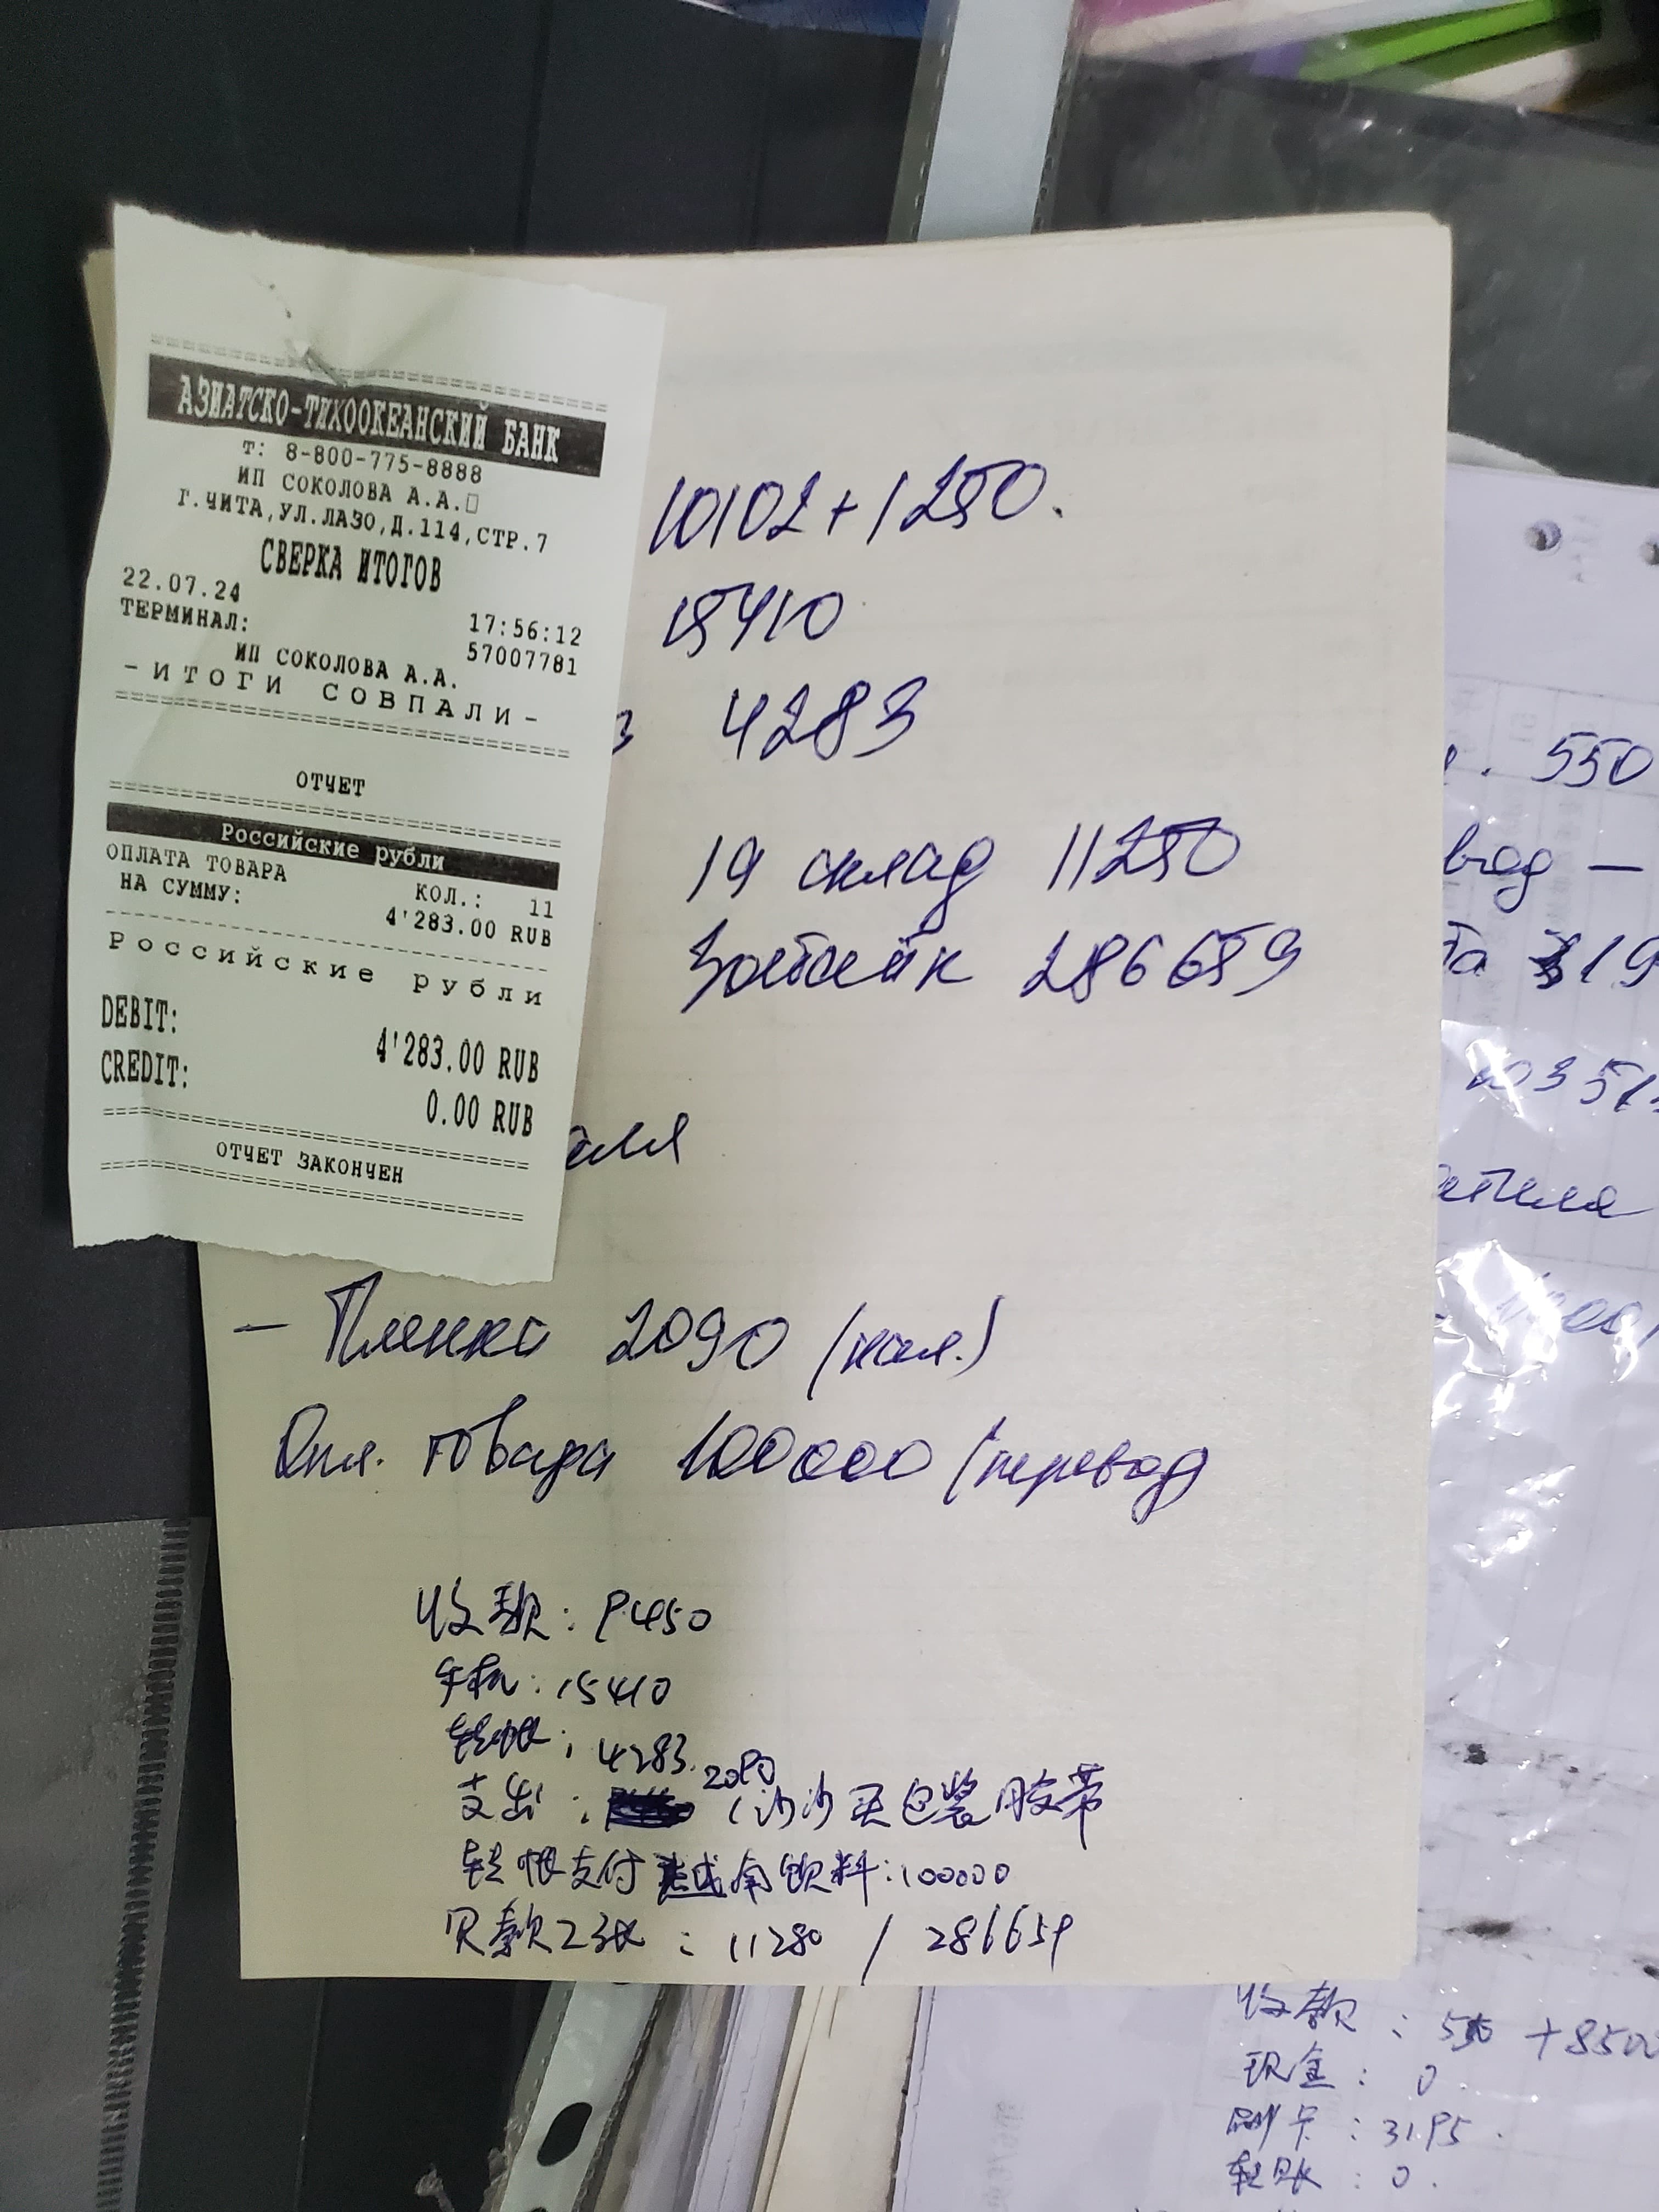 АЗИАТСКО-ТИХООКЕАНСКИЙ БАНК
Т: 8-800-775-8888
ИП СОКОЛОВА А.А.
Г.ЧИТА,УЛ.ЛАЗО,Д.114,СТР.7
СВЕРКА ИТОГОВ
22.07.24 17:56:12
ТЕРМИНАЛ: 57007781
ИП СОКОЛОВА А.А.
-ИТОГИ СОВПАЛИ-
ОТЧЕТ
Российские рубли
ОПЛАТА ТОВАРА КОЛ.: 11
НА СУММУ: 4'283.00 RUB
Российские рубли
DEBIT: 4'283.00 RUB
CREDIT: 0.00 RUB
ОТЧЕТ ЗАКОНЧЕН
10102+1250.
15410
4283
19 склад 11250
286659
- Пленка 2090 (нал.)
Опл. товара 100000 (перевод
收款: 9450
手机: 15410
转帐: 4283
支出: 2090 (沙沙买包装胶带
转帐支付 饮料:100000
欠款2张: 11280 / 286659
550
319
收款: +8500
现金: 0
刷卡: 3195
转账: 0.